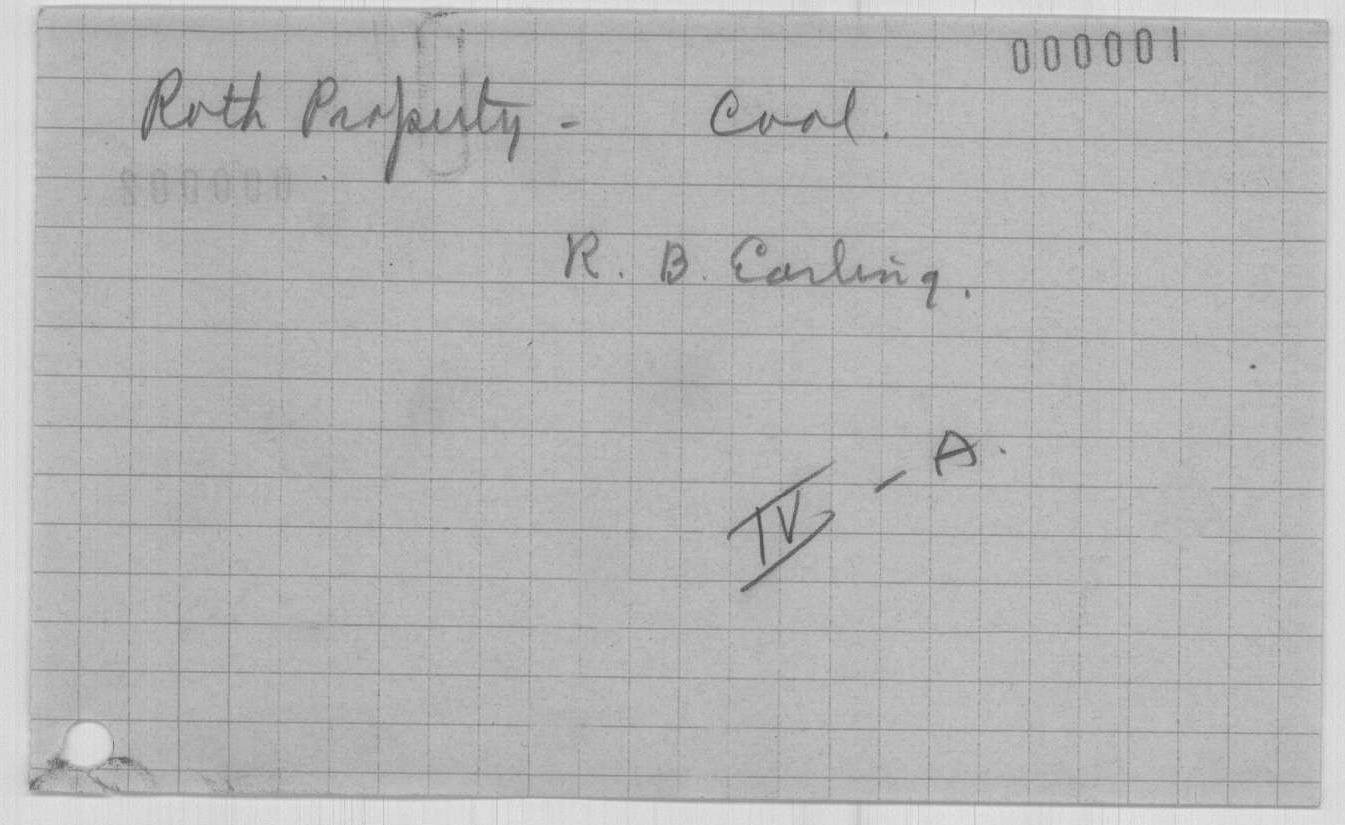 000001
Roth Property - Coal.
R. B. Earling.
IV - A.